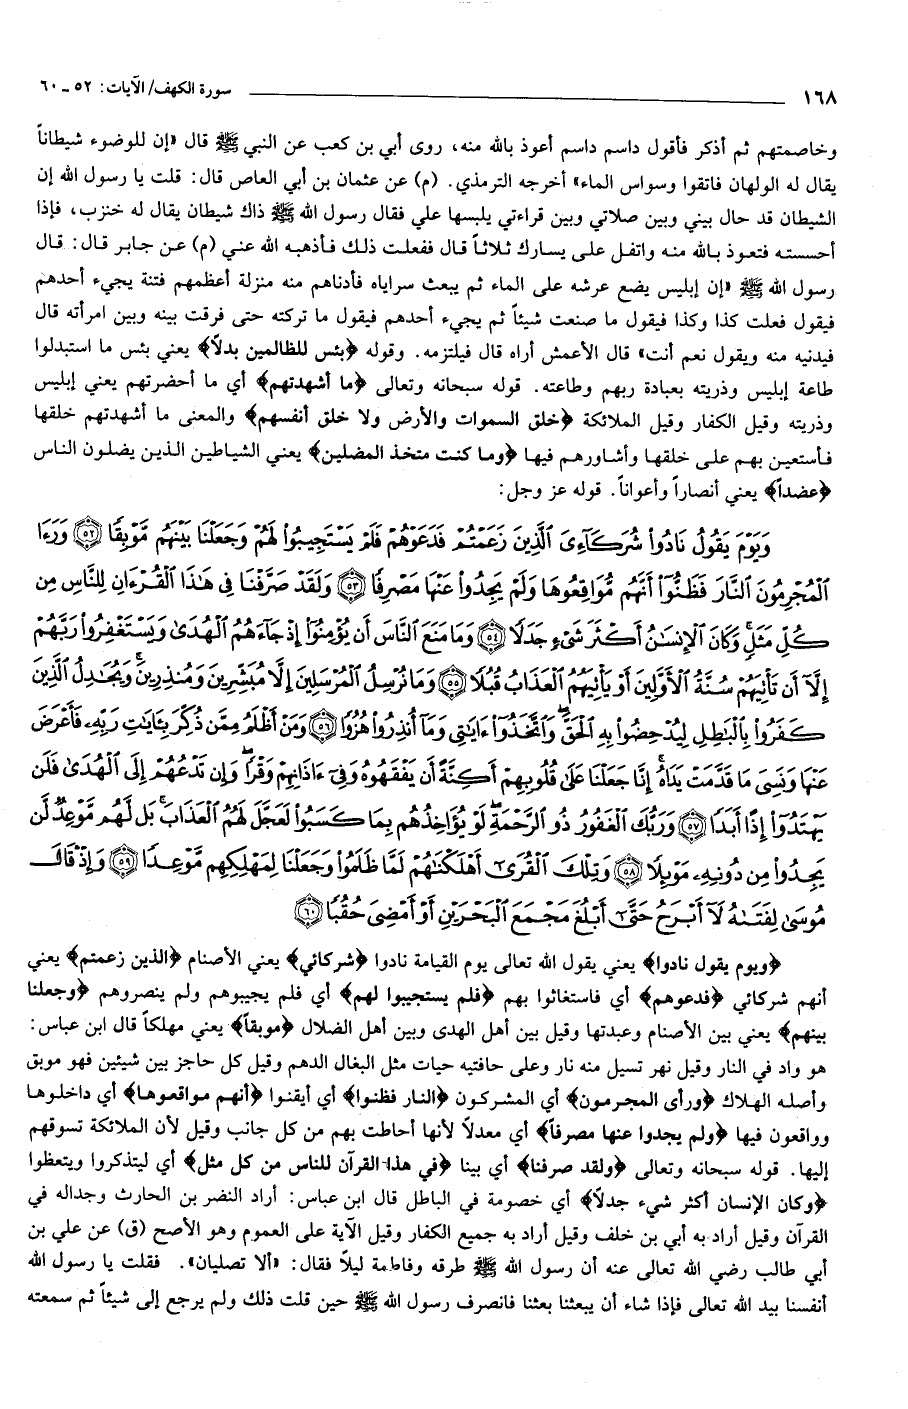 ١٦٨ سورة الكهف/ الآيات: ٥٢ ـ ٦٠
وخاصمتهم ثم أذكر فأقول داسم داسم أعوذ بالله منه، روى أبي بن كعب عن النبي ﷺ قال «إن للوضوء شيطاناً
يقال له الولهان فاتقوا وسواس الماء» أخرجه الترمذي. (م) عن عثمان بن أبي العاص قال: قلت يا رسول الله إن
الشيطان قد حال بيني وبين صلاتي وبين قراءتي يلبسها علي فقال رسول الله ﷺ ذاك شيطان يقال له خنزب، فإذا
أحسسته فتعوذ بالله منه واتفل على يسارك ثلاثاً قال ففعلت ذلك فأذهبه الله عني (م) عن جابر قال: قال
رسول الله ﷺ «إن إبليس يضع عرشه على الماء ثم يبعث سراياه فأدناهم منه منزلة أعظمهم فتنة يجيء أحدهم
فيقول فعلت كذا وكذا فيقول ما صنعت شيئاً ثم يجيء أحدهم فيقول ما تركته حتى فرقت بينه وبين امرأته قال
فيدنيه منه ويقول نعم أنت» قال الأعمش أراه قال فيلتزمه. وقوله ﴿بئس للظالمين بدلاً﴾ يعني بئس ما استبدلوا
طاعة إبليس وذريته بعبادة ربهم وطاعته. قوله سبحانه وتعالى ﴿ما أشهدتهم﴾ أي ما أحضرتهم يعني إبليس
وذريته وقيل الكفار وقيل الملائكة ﴿خلق السموات والأرض ولا خلق أنفسهم﴾ والمعنى ما أشهدتهم خلقها
فأستعين بهم على خلقها وأشاورهم فيها ﴿وما كنت متخذ المضلين﴾ يعني الشياطين الذين يضلون الناس
﴿عضداً﴾ يعني أنصاراً وأعواناً. قوله عز وجل:
وَيَوْمَ يَقُولُ نَادُواْ شُرَكَآءِىَ ٱلَّذِينَ زَعَمْتُمْ فَدَعَوْهُمْ فَلَمْ يَسْتَجِيبُواْ لَهُمْ وَجَعَلْنَا بَيْنَهُم مَّوْبِقًا ﴿٥٢﴾ وَرَءَا
ٱلْمُجْرِمُونَ ٱلنَّارَ فَظَنُّوٓاْ أَنَّهُم مُّوَاقِعُوهَا وَلَمْ يَجِدُواْ عَنْهَا مَصْرِفًا ﴿٥٣﴾ وَلَقَدْ صَرَّفْنَا فِى هَٰذَا ٱلْقُرْءَانِ لِلنَّاسِ مِن
كُلِّ مَثَلٍ وَكَانَ ٱلْإِنسَٰنُ أَكْثَرَ شَىْءٍ جَدَلًا ﴿٥٤﴾ وَمَا مَنَعَ ٱلنَّاسَ أَن يُؤْمِنُوٓاْ إِذْ جَآءَهُمُ ٱلْهُدَىٰ وَيَسْتَغْفِرُواْ رَبَّهُمْ
إِلَّآ أَن تَأْتِيَهُمْ سُنَّةُ ٱلْأَوَّلِينَ أَوْ يَأْتِيَهُمُ ٱلْعَذَابُ قُبُلًا ﴿٥٥﴾ وَمَا نُرْسِلُ ٱلْمُرْسَلِينَ إِلَّا مُبَشِّرِينَ وَمُنذِرِينَ ۚ وَيُجَٰدِلُ ٱلَّذِينَ
كَفَرُواْ بِٱلْبَٰطِلِ لِيُدْحِضُواْ بِهِ ٱلْحَقَّ ۖ وَٱتَّخَذُوٓاْ ءَايَٰتِى وَمَآ أُنذِرُواْ هُزُوًا ﴿٥٦﴾ وَمَنْ أَظْلَمُ مِمَّن ذُكِّرَ بِـَٔايَٰتِ رَبِّهِۦ فَأَعْرَضَ
عَنْهَا وَنَسِىَ مَا قَدَّمَتْ يَدَاهُ ۚ إِنَّا جَعَلْنَا عَلَىٰ قُلُوبِهِمْ أَكِنَّةً أَن يَفْقَهُوهُ وَفِىٓ ءَاذَانِهِمْ وَقْرًا ۖ وَإِن تَدْعُهُمْ إِلَى ٱلْهُدَىٰ فَلَن
يَهْتَدُوٓاْ إِذًا أَبَدًا ﴿٥٧﴾ وَرَبُّكَ ٱلْغَفُورُ ذُو ٱلرَّحْمَةِ ۖ لَوْ يُؤَاخِذُهُم بِمَا كَسَبُواْ لَعَجَّلَ لَهُمُ ٱلْعَذَابَ ۚ بَل لَّهُم مَّوْعِدٌ لَّن
يَجِدُواْ مِن دُونِهِۦ مَوْئِلًا ﴿٥٨﴾ وَتِلْكَ ٱلْقُرَىٰٓ أَهْلَكْنَٰهُمْ لَمَّا ظَلَمُواْ وَجَعَلْنَا لِمَهْلِكِهِم مَّوْعِدًا ﴿٥٩﴾ وَإِذْ قَالَ
مُوسَىٰ لِفَتَىٰهُ لَآ أَبْرَحُ حَتَّىٰٓ أَبْلُغَ مَجْمَعَ ٱلْبَحْرَيْنِ أَوْ أَمْضِىَ حُقُبًا ﴿٦٠﴾
﴿ويوم يقول نادوا﴾ يعني يقول الله تعالى يوم القيامة نادوا ﴿شركائي﴾ يعني الأصنام ﴿الذين زعمتم﴾ يعني
أنهم شركائي ﴿فدعوهم﴾ أي فاستغاثوا بهم ﴿فلم يستجيبوا لهم﴾ أي فلم يجيبوهم ولم ينصروهم ﴿وجعلنا
بينهم﴾ يعني بين الأصنام وعبدتها وقيل بين أهل الهدى وبين أهل الضلال ﴿موبقاً﴾ يعني مهلكاً قال ابن عباس:
هو واد في النار وقيل نهر تسيل منه نار وعلى حافتيه حيات مثل البغال الدهم وقيل كل حاجز بين شيئين فهو موبق
وأصله الهلاك ﴿ورأى المجرمون﴾ أي المشركون ﴿النار فظنوا﴾ أي أيقنوا ﴿أنهم مواقعوها﴾ أي داخلوها
وواقعون فيها ﴿ولم يجدوا عنها مصرفاً﴾ أي معدلاً لأنها أحاطت بهم من كل جانب وقيل لأن الملائكة تسوقهم
إليها. قوله سبحانه وتعالى ﴿ولقد صرفنا﴾ أي بينا ﴿في هذا القرآن للناس من كل مثل﴾ أي ليتذكروا ويتعظوا
﴿وكان الإنسان أكثر شيء جدلاً﴾ أي خصومة في الباطل قال ابن عباس: أراد النضر بن الحارث وجداله في
القرآن وقيل أراد به أبي بن خلف وقيل أراد به جميع الكفار وقيل الآية على العموم وهو الأصح (ق) عن علي بن
أبي طالب رضي الله تعالى عنه أن رسول الله ﷺ طرقه وفاطمة ليلاً فقال: «ألا تصليان». فقلت يا رسول الله
أنفسنا بيد الله تعالى فإذا شاء أن يبعثنا بعثنا فانصرف رسول الله ﷺ حين قلت ذلك ولم يرجع إلى شيئاً ثم سمعته